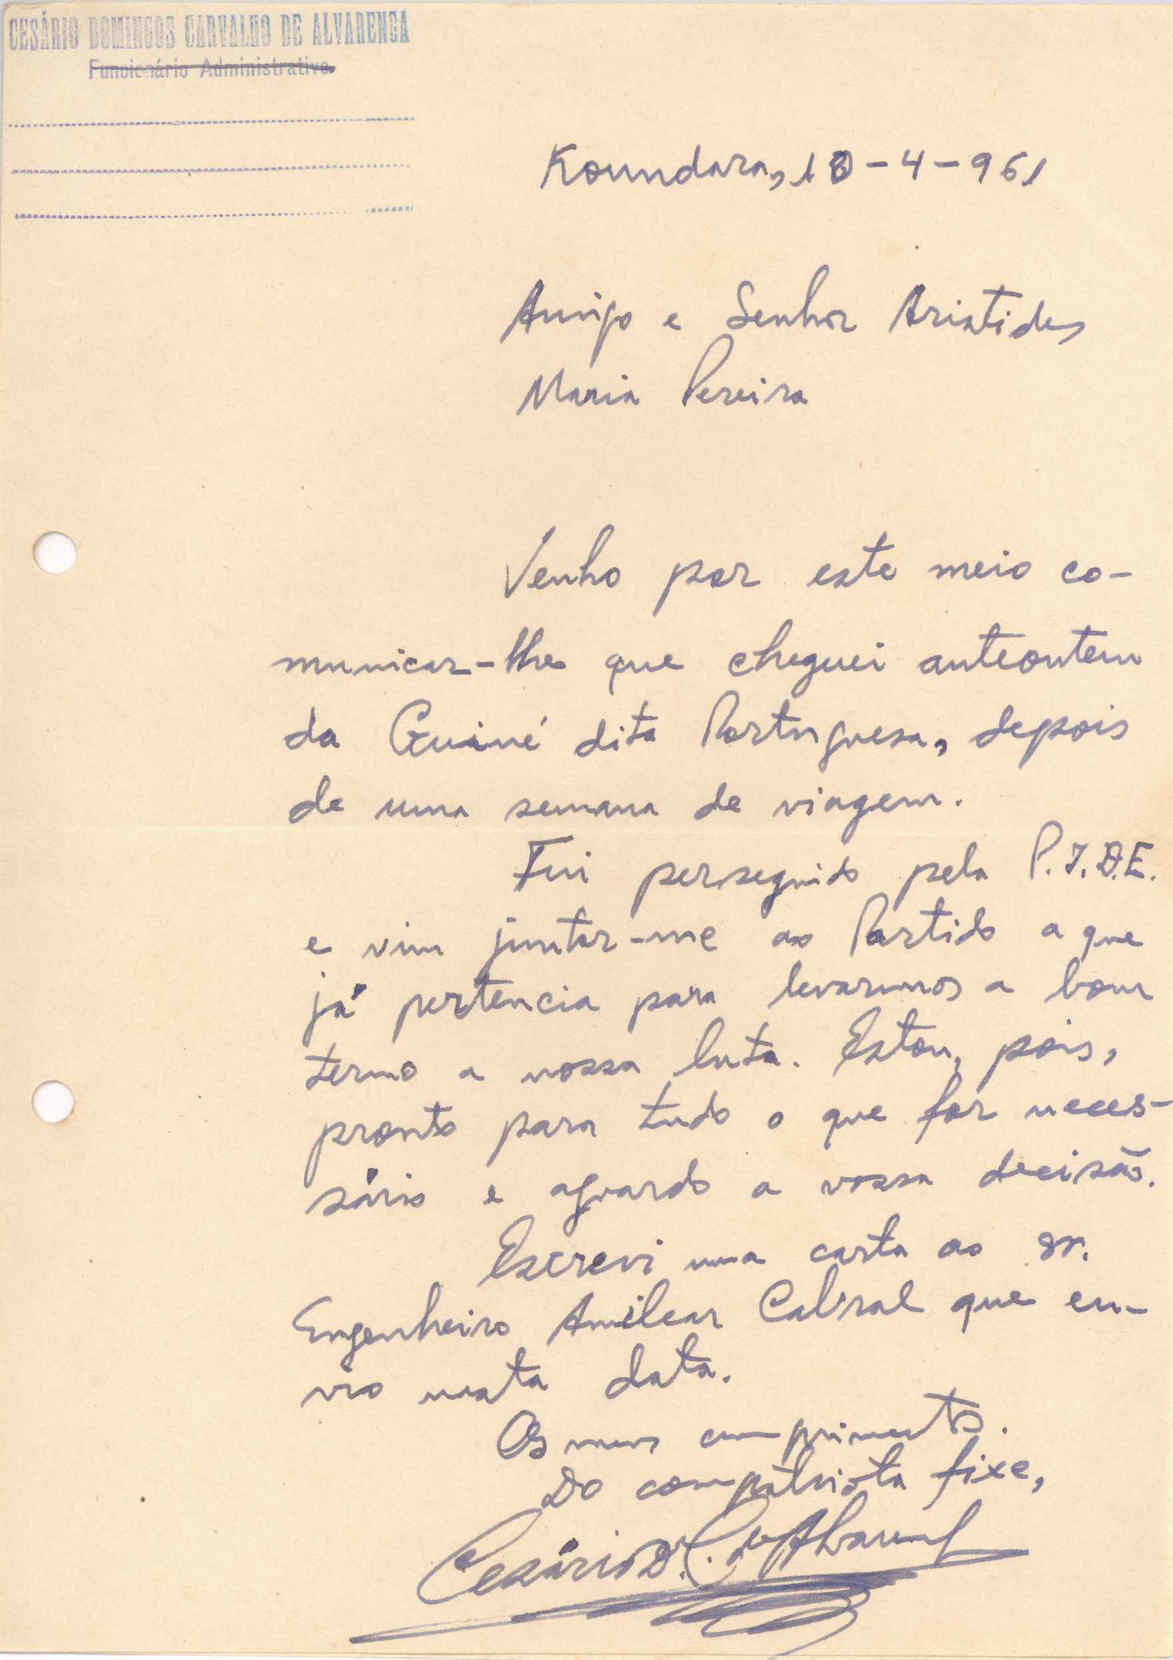 CESÁRIO DOMINGOS CARVALHO DE ALVARENGA
Funcionário Administrativo
Koundara, 10-4-961
Amigo e Senhor Aristides
Maria Pereira
Venho por este meio co-
municar-lhe que cheguei anteontem
da Guiné dita Portuguesa, depois
de uma semana de viagem.
Fui perseguido pela P.I.D.E.
e vim juntar-me ao Partido a que
já pertencia para levarmos a bom
termo a nossa luta. Estou, pois,
pronto para tudo o que for neces-
sário e aguardo a vossa decisão.
Escrevi uma carta ao sr.
Engenheiro Amilcar Cabral que en-
vio nesta data.
Os meus cumprimentos.
Do compatriota fixe,
Cesário D. C. de Alvarenga